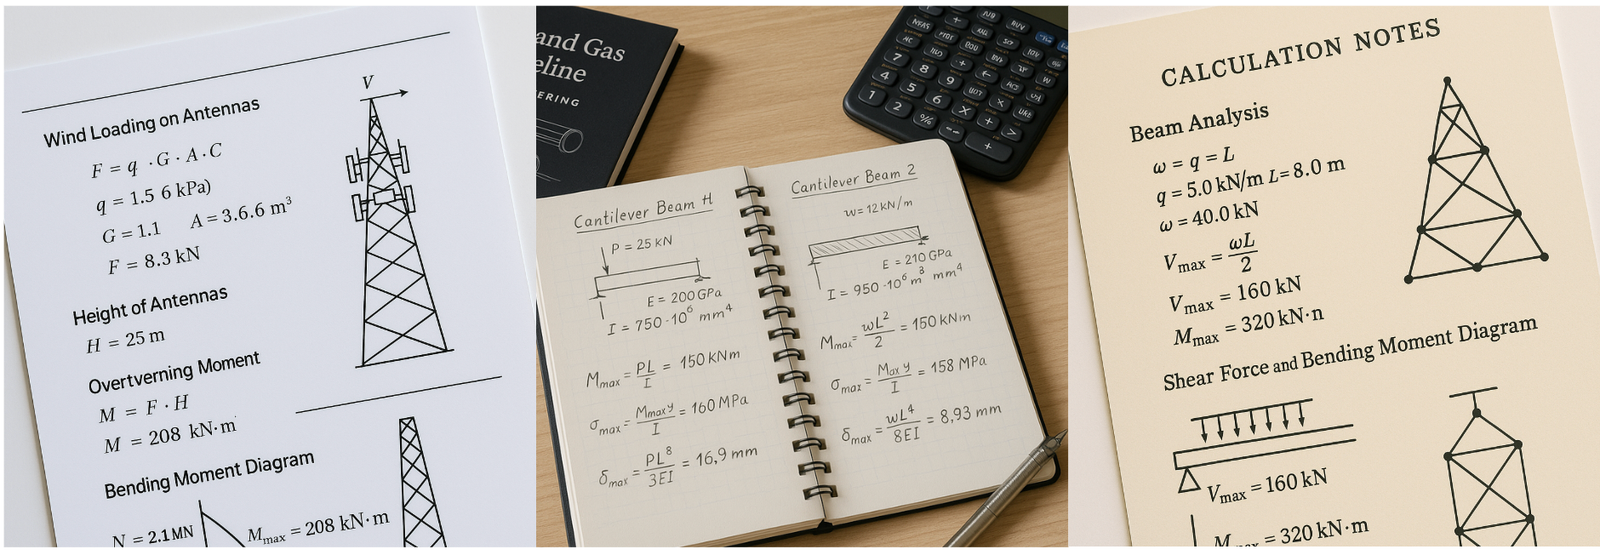 V
Wind Loading on Antennas
F = q · G · A · C
q = 1.5 6 kPa)
G = 1.1 A = 3.6.6 m³
F = 8.3 kN
Height of Antennas
H = 25 m
Overtverning Moment
M = F · H
M = 208 kN·m
Bending Moment Diagram
N = 2.1 MN
Mmax = 208 kN·m
and Gas
eline
ERING
7 8 9
4 5 6 ×
1 2 % +
Cantilever Beam H
P = 25 kN
E = 200 GPa
I = 750 · 10⁶ mm⁴
Mmax = PL/I = 150 KNm
σmax = Mmax y/I = 160 MPa
δmax = PL⁸/3EI = 16,9 mm
Cantilever Beam 2
w = 12 kN/m
E = 210 GPa
I = 950 · 10⁶ m³ mm⁴
Mmax = wL²/2 = 150 kNm
σmax = Max y/I = 158 MPa
δmax = wL⁴/8EI = 8,93 mm
CALCULATION NOTES
Beam Analysis
ω = q = L
q = 5.0 kN/m L = 8.0 m
ω = 40.0 kN
Vmax = ωL/2
Vmax = 160 kN
Mmax = 320 kN·n
Shear Force and Bending Moment Diagram
Vmax = 160 kN
Mmax = 320 kN·m